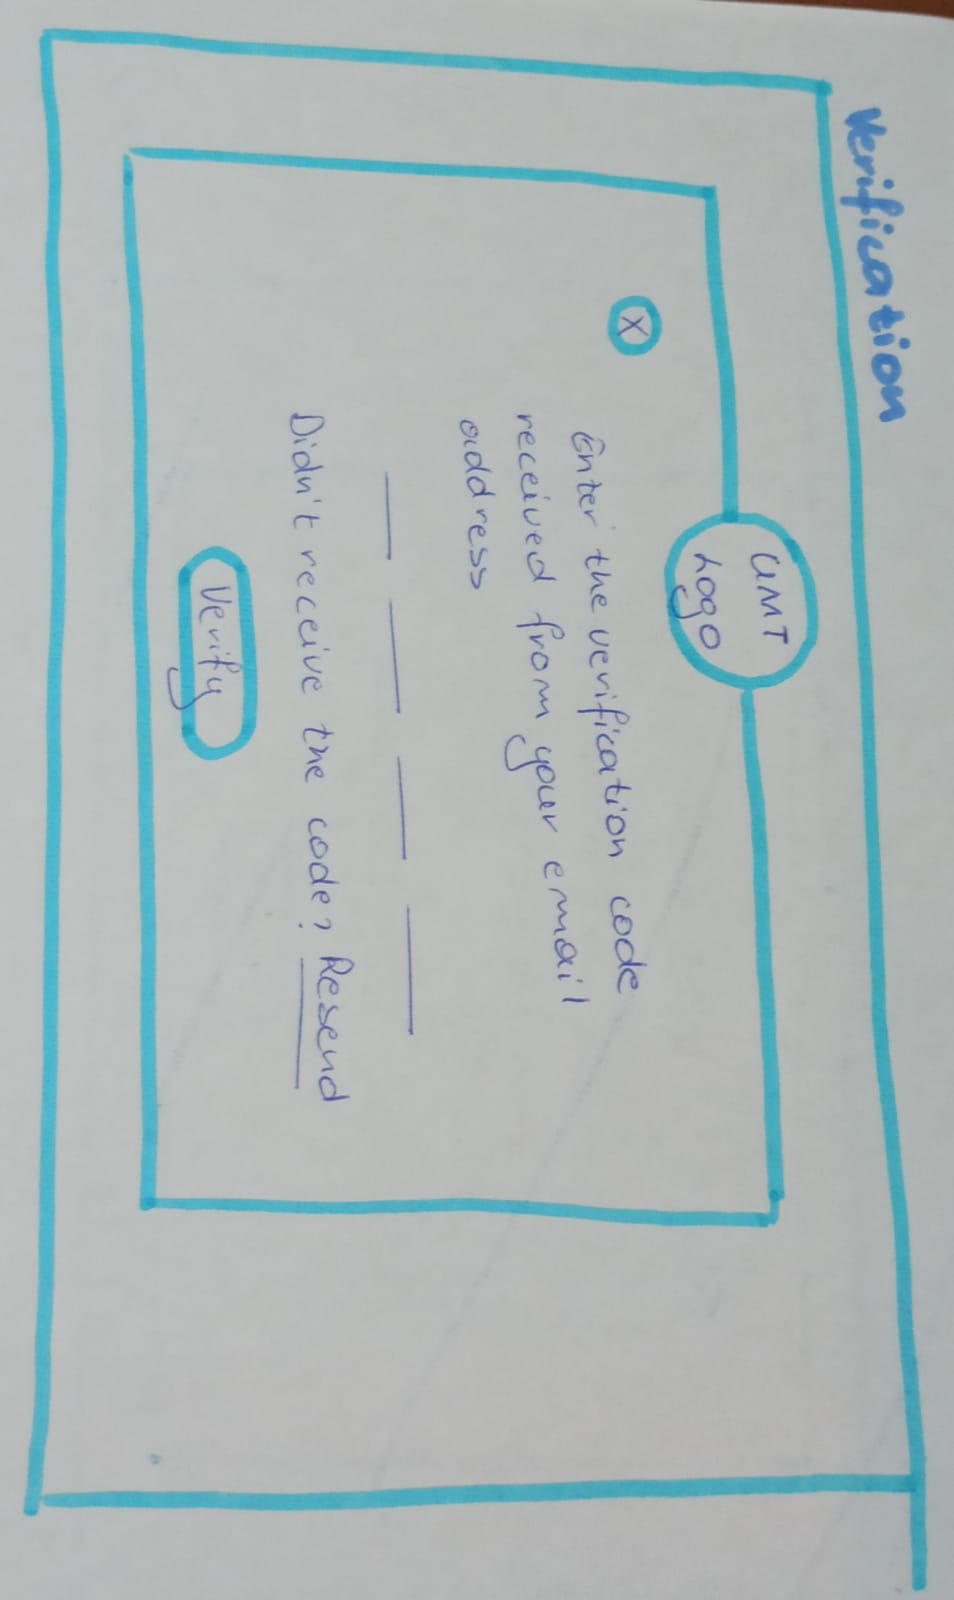 Verification
UMT
Logo
X
Enter the verification code
received from your email
address
Didn't receive the code? Resend
Verify